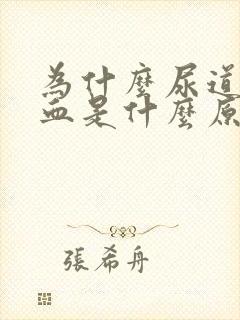 為什麼尿道
血是什麼原
張希舟